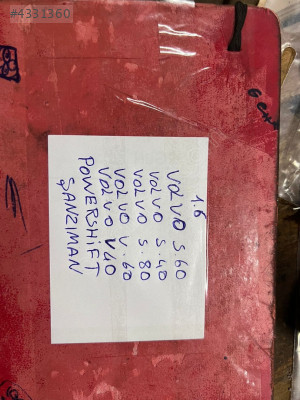 #4331360
1.6
VOLVO S.60
VOLVO S.40
VOLVO S.80
VOLVO V.60
VOLVO V40
POWERSHİFT
ŞANZIMAN